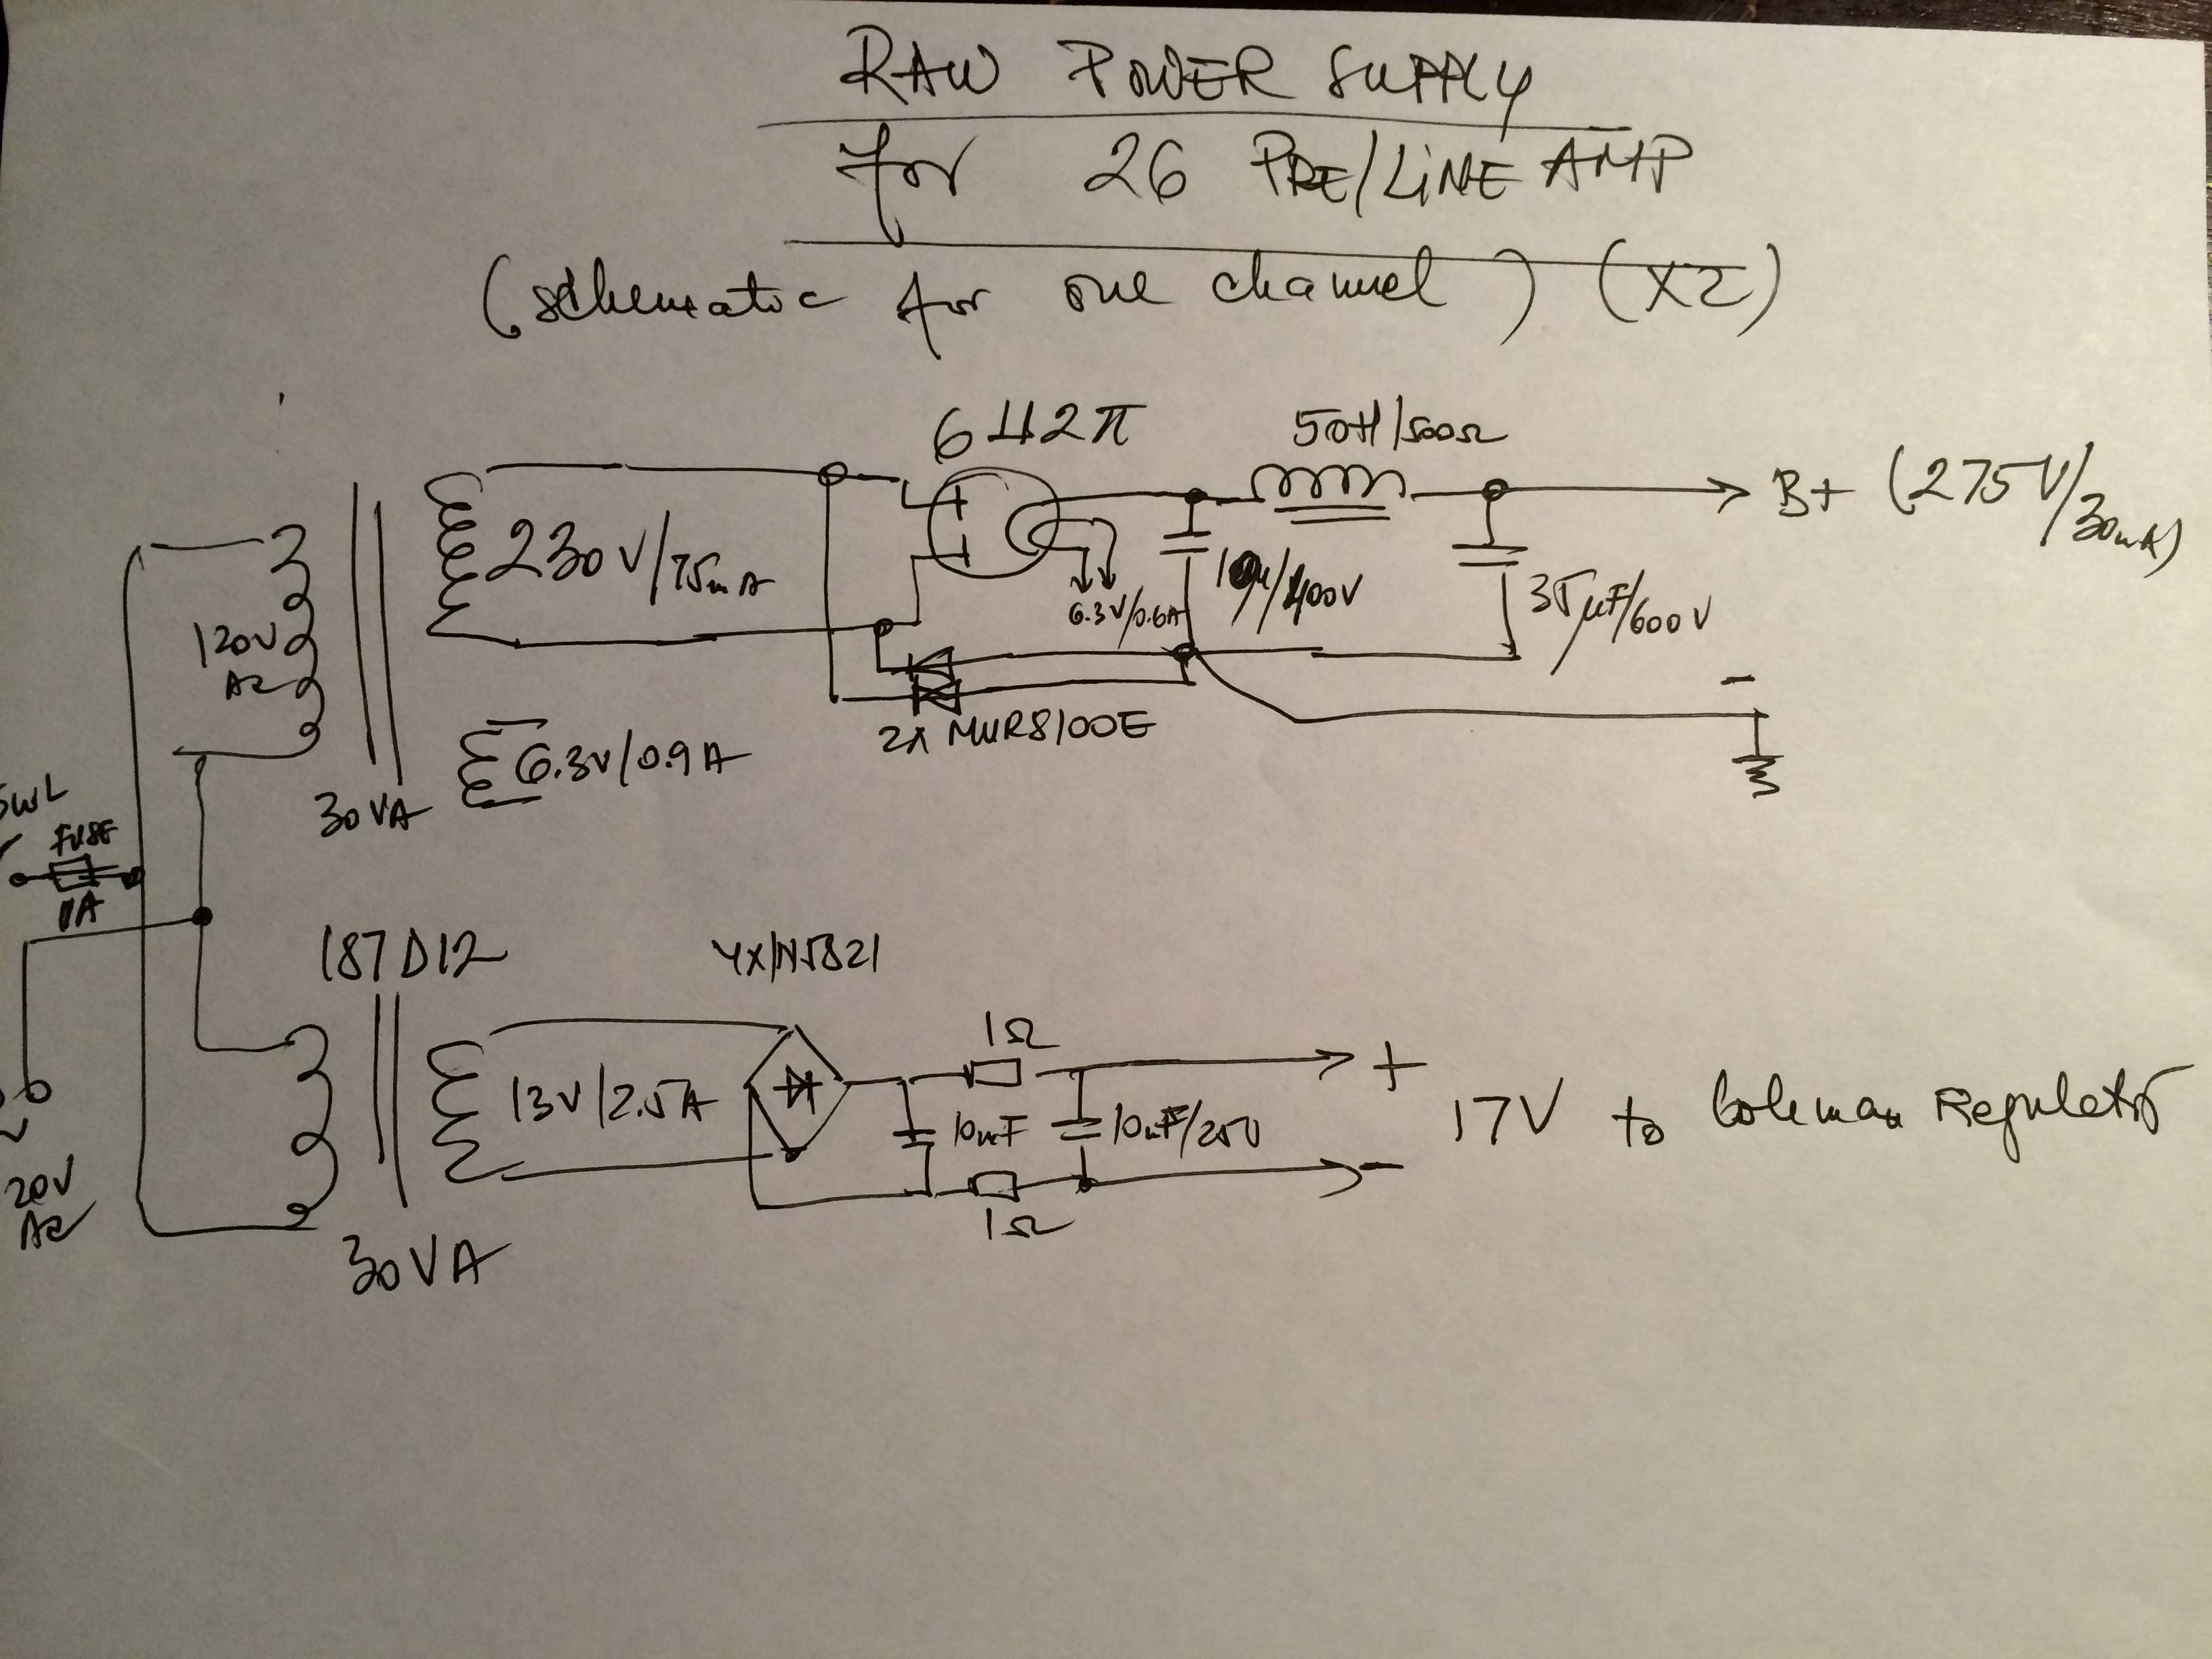 RAW POWER SUPPLY
for 26 PRE/LINE AMP
(schematic for one channel) (X2)
6Ц2П
50H/500Ω
B+ (275V/30mA)
230V/75mA
6.3V/0.6A
10μ/400V
35μF/600V
120V
AC
-
2x MUR8100E
6.3V/0.9A
30VA
FUSE
1A
187D12
4X1N5821
1Ω
+
13V/2.5A
10mF
10mF/25V
17V to Coleman Regulator
-
20V
AC
1Ω
30VA